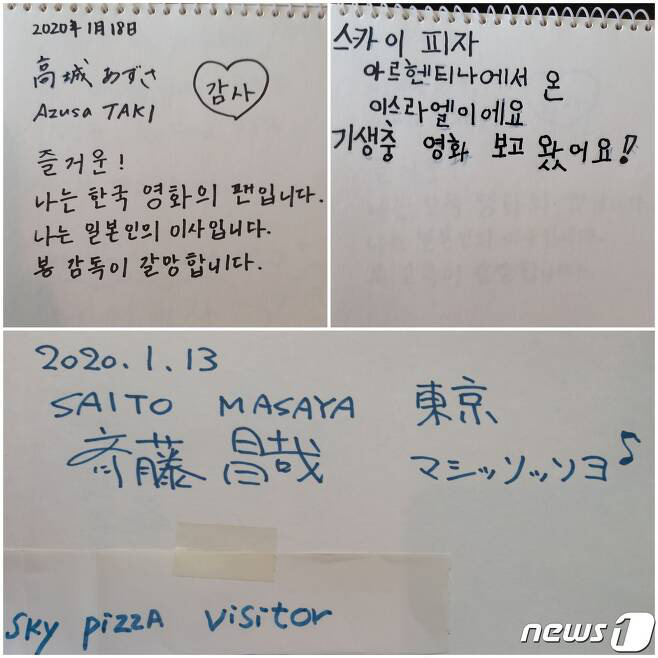 2020年 1月 18日
高城 あずさ
감사
Azusa TAKI
즐거운!
나는 한국 영화의 팬입니다.
나는 일본인의 이사입니다.
봉 감독이 갈망합니다.
스카이 피자
아르헨티나에서 온
이스라엘이에요
기생충 영화 보고 왔어요!
2020.1.13
SAITO MASAYA 東京
斉藤 昌哉 マシッソッソヨ♪
sky pizzA visitor
news1